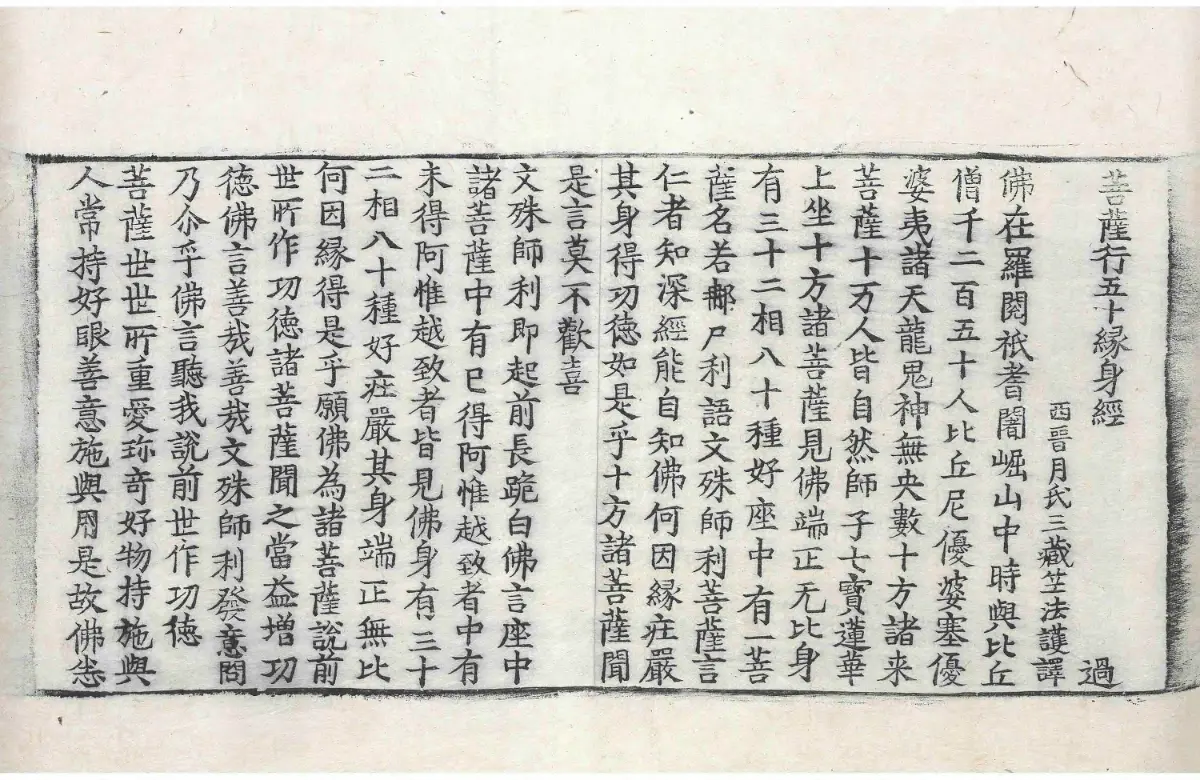 菩薩行五十緣身經　過
西晉月氏三藏竺法護譯
佛在羅閱祇耆闍崛山中時與比丘
僧千二百五十人比丘尼優婆塞優
婆夷諸天龍鬼神無央數十方諸来
菩薩十万人皆自然師子七寶蓮華
上坐十方諸菩薩見佛端正无比身
有三十二相八十種好座中有一菩
薩名若郍尸利語文殊師利菩薩言
仁者知深經能自知佛何因縁㽵嚴
其身得功徳如是乎十方諸菩薩聞
是言莫不歡喜
文殊師利即起前長跪白佛言座中
諸菩薩中有已得阿惟越致者中有
未得阿惟越致者皆見佛身有三十
二相八十種好㽵嚴其身端正無比
何因縁得是乎願佛為諸菩薩説前
世所作功徳諸菩薩聞之當益増功
徳佛言善㢤善㢤文殊師利發意問
乃尒乎佛言聽我説前世作功徳
菩薩世世所重愛珎奇好物持施與
人常持好眼善意施與用是故佛㤙